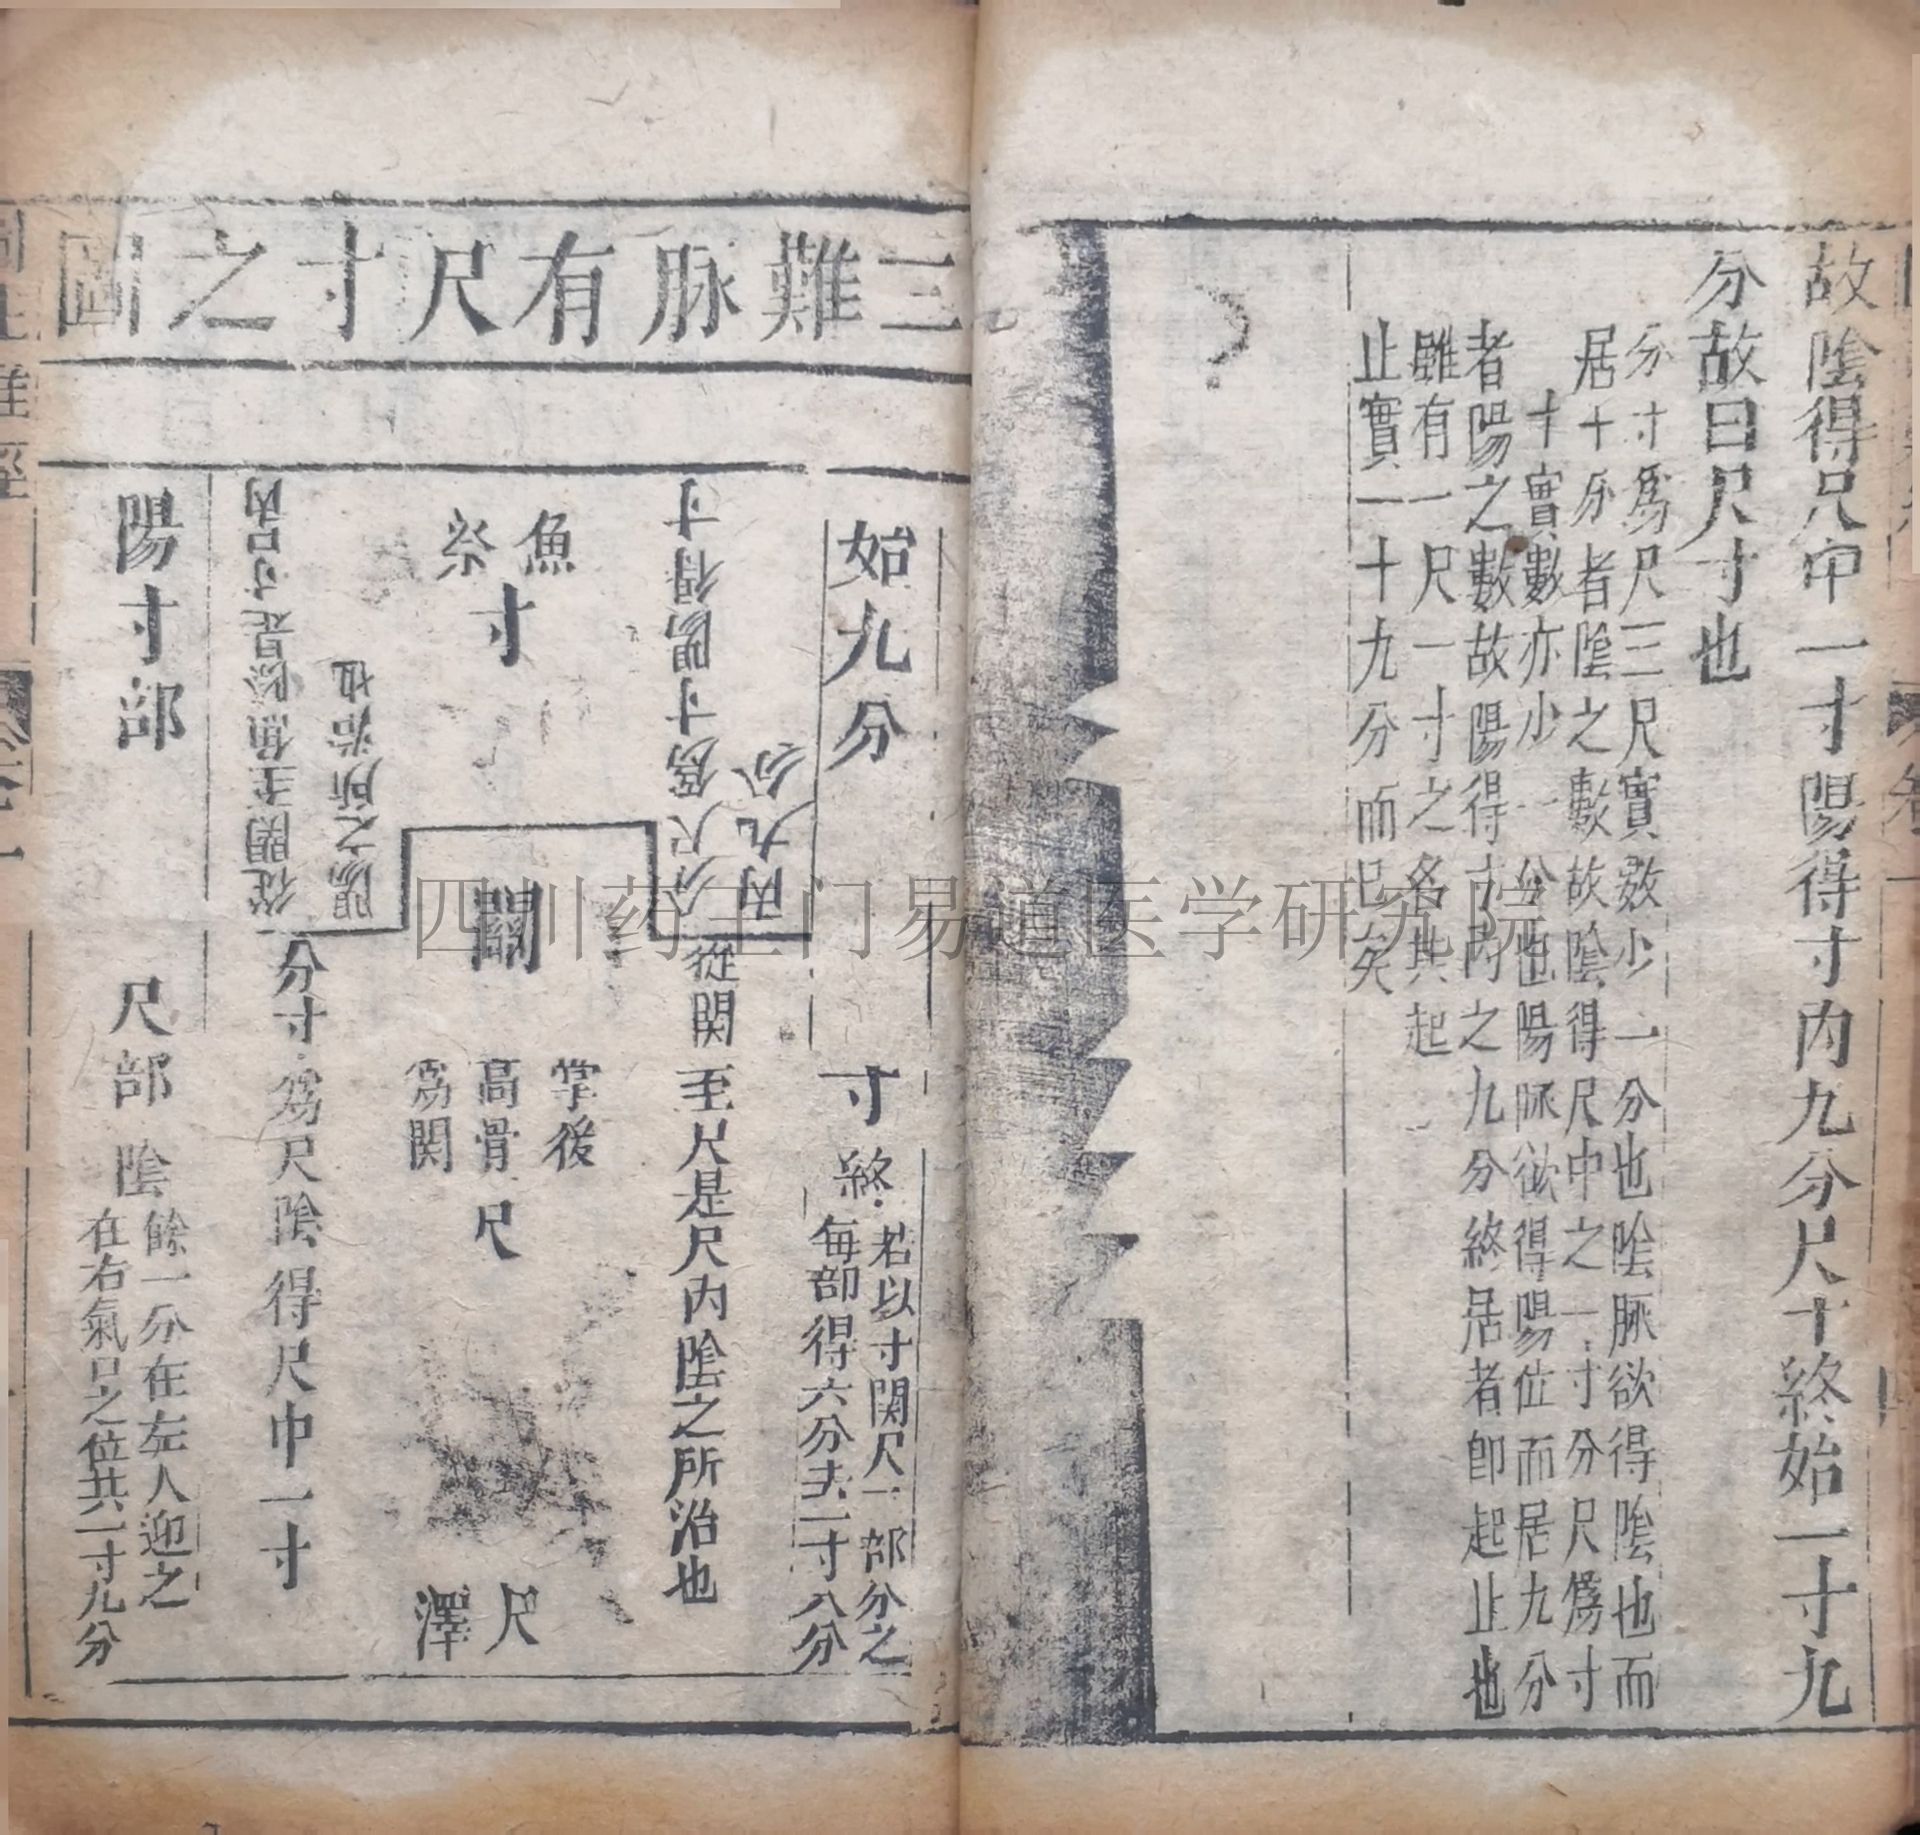 故陰得尺中一寸陽得寸內九分尺寸終始一寸九
分故曰尺寸也
分寸爲尺三尺實数少一分也陰脈欲得陰也而
居十分者陰之數故陰得尺中之一寸分尺爲寸
十實數亦少一分也陽脈欲得陽位而居九分
者陽之數故陽得寸內之九分終居者即起止也
雖有一尺一寸之名其起
止實一十九分而已矣
三難脉有尺寸之圖
始九分
寸終
若以寸関尺一部分之
每部得六分夫一寸八分
分尺為寸陽得寸
內九分
從関至尺是尺內陰之所治也
魚祭
寸
關
掌後
高骨
為関
尺
尺澤
從関至魚際是寸口內
陽之所治也
分寸為尺陰得尺中一寸
陽寸部
尺部陰
餘一分在左人迎之
在右氣口之位共一寸九分
四川药王门易道医学研究院